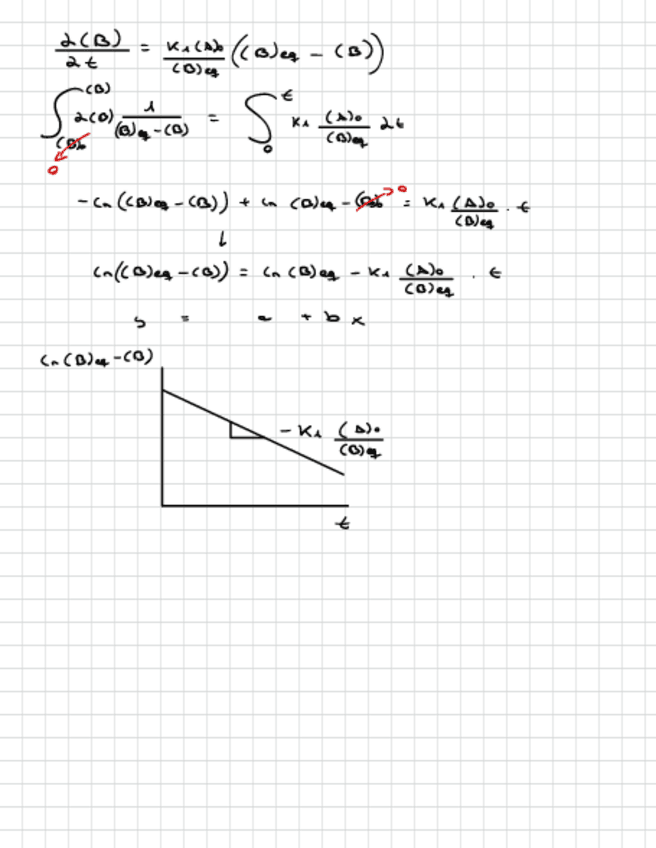 d(B)/dt = K₁(A)₀/(B)eq ((B)eq - (B))
∫(B)₀→0^(B) d(B) 1/((B)eq-(B)) = ∫₀^t K₁ (A)₀/(B)eq dt
-ln((B)eq-(B)) + ln (B)eq-(B)₀→0 = K₁ (A)₀/(B)eq · t
↓
ln((B)eq-(B)) = ln (B)eq - K₁ (A)₀/(B)eq · t
y = a + b x
ln(B)eq-(B)
-K₁ (A)₀/(B)eq
t